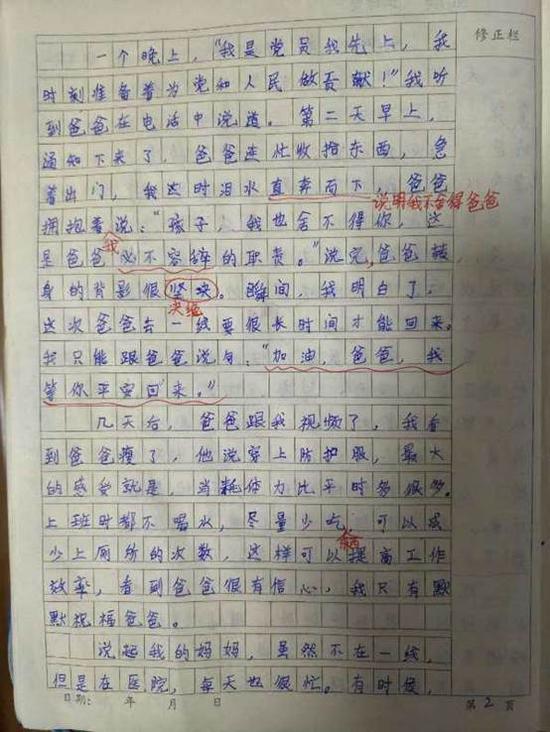 修正栏
一个晚上，“我是党员我先上，我
时刻准备着为党和人民做贡献！”我听
到爸爸在电话中说道。第二天早上，
通知下来了，爸爸连忙收拾东西，急
着出门，我这时泪水直奔而下，爸爸
说明我不舍得爸爸
拥抱着说：“孩子，我也舍不得你，这
是爸爸义不容辞的职责。”说完，爸爸转
身的背影很坚决。瞬间，我明白了，
这次爸爸去一线要很长时间才能回来。
我只能跟爸爸说句：“加油，爸爸，我
等你平安回来。”
几天后，爸爸跟我视频了，我看
到爸爸瘦了，他说穿上防护服，最大
的感受就是，消耗体力比平时多很多。
上班时都不喝水，尽量少吃，可以减
东西
少上厕所的次数，这样可以提高工作
效率，看到爸爸很有信心，我只有默
默祝福爸爸。
说起我的妈妈，虽然不在一线，
但是在医院，每天也很忙。有时候，
日期： 年 月 日 第 2 页